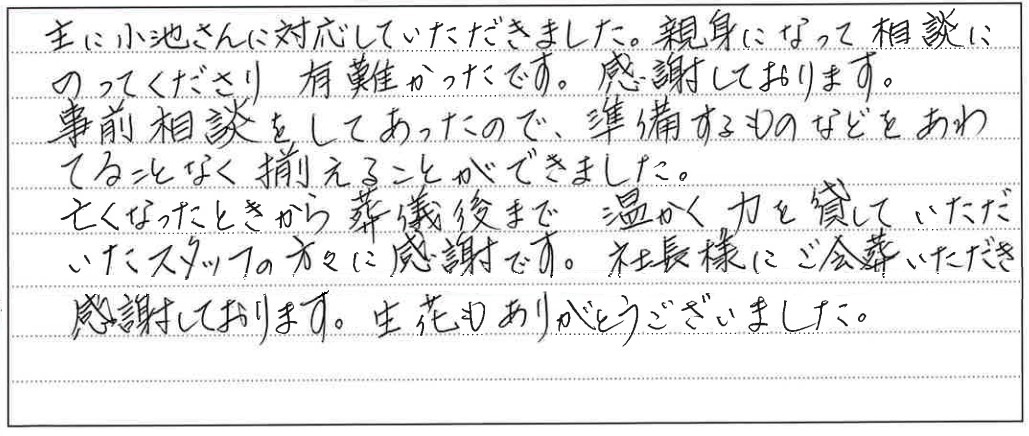 主に小池さんに対応していただきました。親身になって相談に
のってくださり 有難かったです。感謝しております。
事前相談をしてあったので、準備するものなどをあわ
てることなく揃えることができました。
亡くなったときから葬儀後まで 温かく力を貸していただ
いたスタッフの方々に感謝です。社長様にご会葬いただき
感謝しております。生花もありがとうございました。